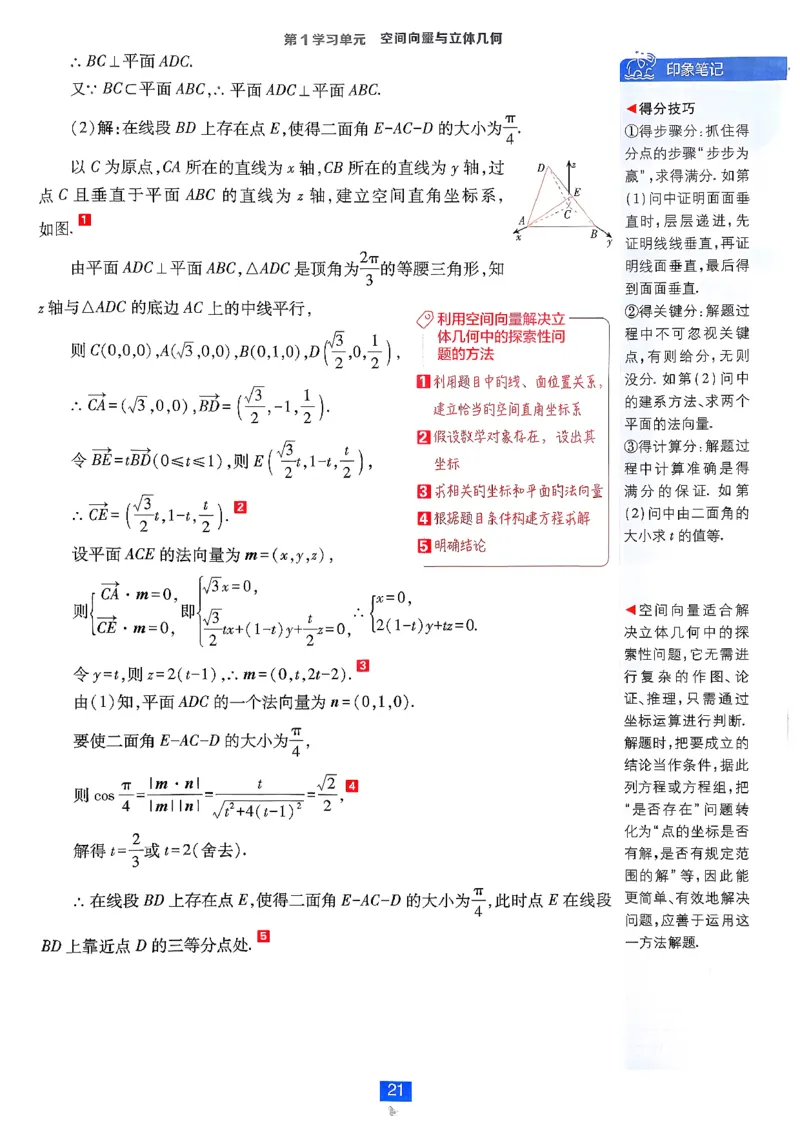 第1学习单元 空间向量与立体几何
∴BC⊥平面ADC.
又∵BC⊂平面ABC,∴平面ADC⊥平面ABC.
(2)解:在线段BD上存在点E,使得二面角E-AC-D的大小为π/4.
以C为原点,CA所在的直线为x轴,CB所在的直线为y轴,过
点C且垂直于平面ABC的直线为z轴,建立空间直角坐标系,
如图.1
D z
E
A C
x B y
由平面ADC⊥平面ABC,△ADC是顶角为2π/3的等腰三角形,知
z轴与△ADC的底边AC上的中线平行,
则C(0,0,0),A(√3,0,0),B(0,1,0),D(√3/2,0,1/2),
∴CA=(√3,0,0),BD=(√3/2,-1,1/2).
令BE=tBD(0≤t≤1),则E(√3/2t,1-t,t/2),
∴CE=(√3/2t,1-t,t/2).2
设平面ACE的法向量为m=(x,y,z),
则{CA·m=0, CE·m=0, 即{√3x=0, √3/2tx+(1-t)y+t/2z=0, ∴{x=0, 2(1-t)y+tz=0.
令y=t,则z=2(t-1),∴m=(0,t,2t-2).3
由(1)知,平面ADC的一个法向量为n=(0,1,0).
要使二面角E-AC-D的大小为π/4,
则cos π/4=|m·n|/|m||n|=t/√(t²+4(t-1)²)=√2/2,4
解得t=2/3或t=2(舍去).
∴在线段BD上存在点E,使得二面角E-AC-D的大小为π/4,此时点E在线段
BD上靠近点D的三等分点处.5
利用空间向量解决立
体几何中的探索性问
题的方法
1利用题目中的线、面位置关系,
建立恰当的空间直角坐标系
2假设数学对象存在,设出其
坐标
3求相关的坐标和平面的法向量
4根据题目条件构建方程求解
5明确结论
印象笔记
◀得分技巧
①得步骤分:抓住得
分点的步骤“步步为
赢”,求得满分.如第
(1)问中证明面面垂
直时,层层递进,先
证明线线垂直,再证
明线面垂直,最后得
到面面垂直.
②得关键分:解题过
程中不可忽视关键
点,有则给分,无则
没分.如第(2)问中
的建系方法、求两个
平面的法向量.
③得计算分:解题过
程中计算准确是得
满分的保证.如第
(2)问中由二面角的
大小求t的值等.
◀空间向量适合解
决立体几何中的探
索性问题,它无需进
行复杂的作图、论
证、推理,只需通过
坐标运算进行判断.
解题时,把要成立的
结论当作条件,据此
列方程或方程组,把
“是否存在”问题转
化为“点的坐标是否
有解,是否有规定范
围的解”等,因此能
更简单、有效地解决
问题,应善于运用这
一方法解题.
21